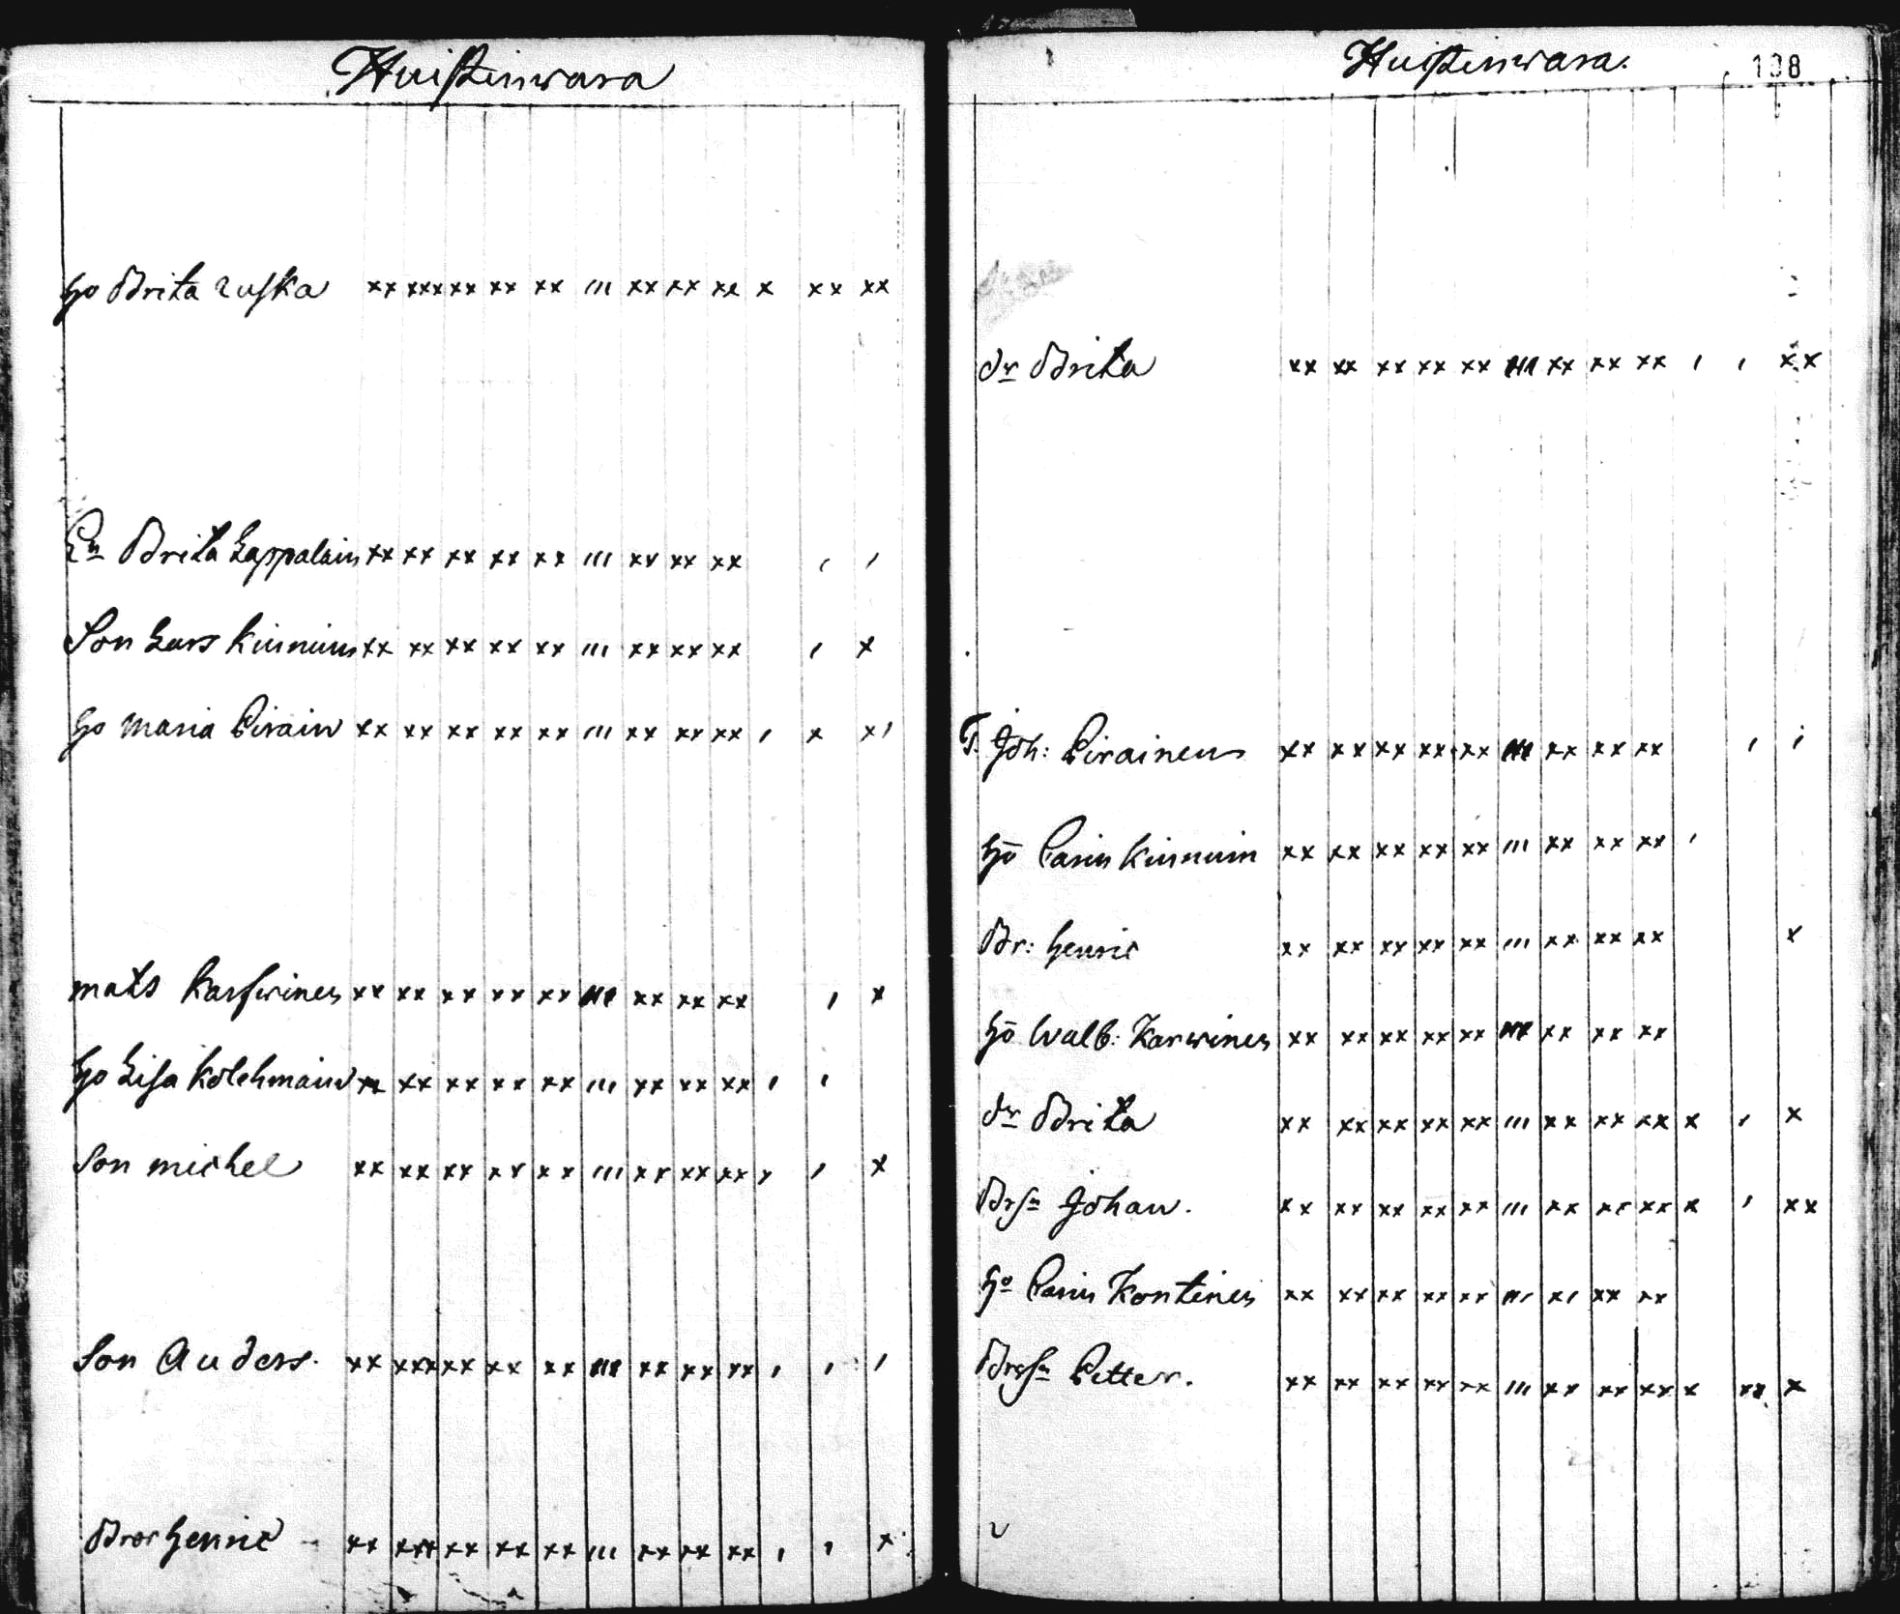 Huistinwara
ho Brita Ruska xx xxx xx xx xx ııı xx xx xx x xx xx
En Brita Lappalain xx xx xx xx xx ııı xx xx xx , ,
Son Lars Kinnunen xx xx xx xx xx ııı xx xx xx , x
ho Maria Pirain xx xx xx xx xx ııı xx xx xx , x x,
mats Karhwinen xx xx xx xx xx ııı xx xx xx , x
ho Lisa Kolehmain xx xx xx xx xx ııı xx xx xx , ,
Son michel xx xx xx xx xx ııı xx xx xx , , x
Son Anders. xx xxx xx xx xx ııı xx xx xx , , ,
Bror henric xx xxx xx xx xx ııı xx xx xx , , x
Huistinwara. 198
dr Brita xx xx xx xx xx ııı xx xx xx , , xx
T. Joh: Pirainen xx xx xx xx xx ııı xx xx xx , ,
ho Carin Kinnuin xx xx xx xx xx ııı xx xx xx ,
Br: henric xx xx xx xx xx ııı xx xx xx x
ho Walb: Karwinen xx xx xx xx xx ııı xx xx xx
dr Brita xx xx xx xx xx ııı xx xx xx x , x
Brsn Johan. xx xx xx xx xx ııı xx xx xx x , xx
ho Carin Kontinen xx xx xx xx xx ııı x, xx xx
Brsn Petter. xx xx xx xx xx ııı xx xx xx x xx x